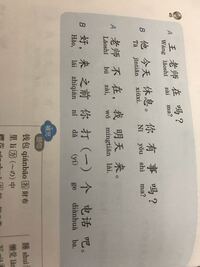 A 王老师在吗？
Wáng lǎoshī zài ma?
B 他今天休息。你有事吗？
Tā jīntiān xiūxi. Nǐ yǒu shì ma?
A 老师不在，我明天来。
Lǎoshī bú zài, wǒ míngtiān lái.
B 好，来之前你打（一）个电话吧。
Hǎo, lái zhīqián nǐ dǎ (yí) ge diànhuà ba.
补充
钱包 qiánbāo 名 財布
里 lǐ 方（～の）中
睡 shuì